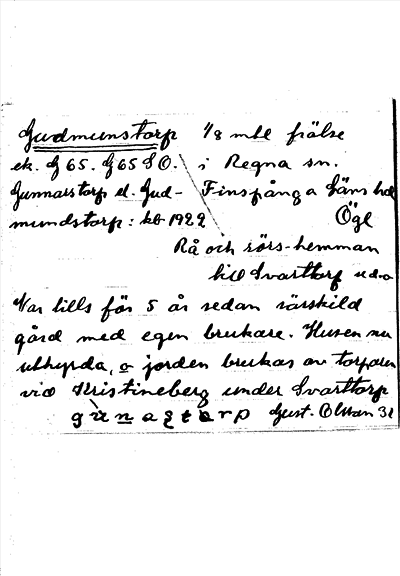 Gudmunstorp 1/8 mtl frälse
ek. G 65. G 65 S O. i Regna sn.
Gunnarstorp el. Gud- Finspånga läns hd
mundstorp: kb 1922 Ögl
Rå och rörs-hemman
till Svarttorp uda
Var tills för 5 år sedan särskild
gård med egen brukare. Husen nu
uthyrda, o jorden brukas av torparen
vid Kristineberg under Svarttorp
Gust. Olsson 31